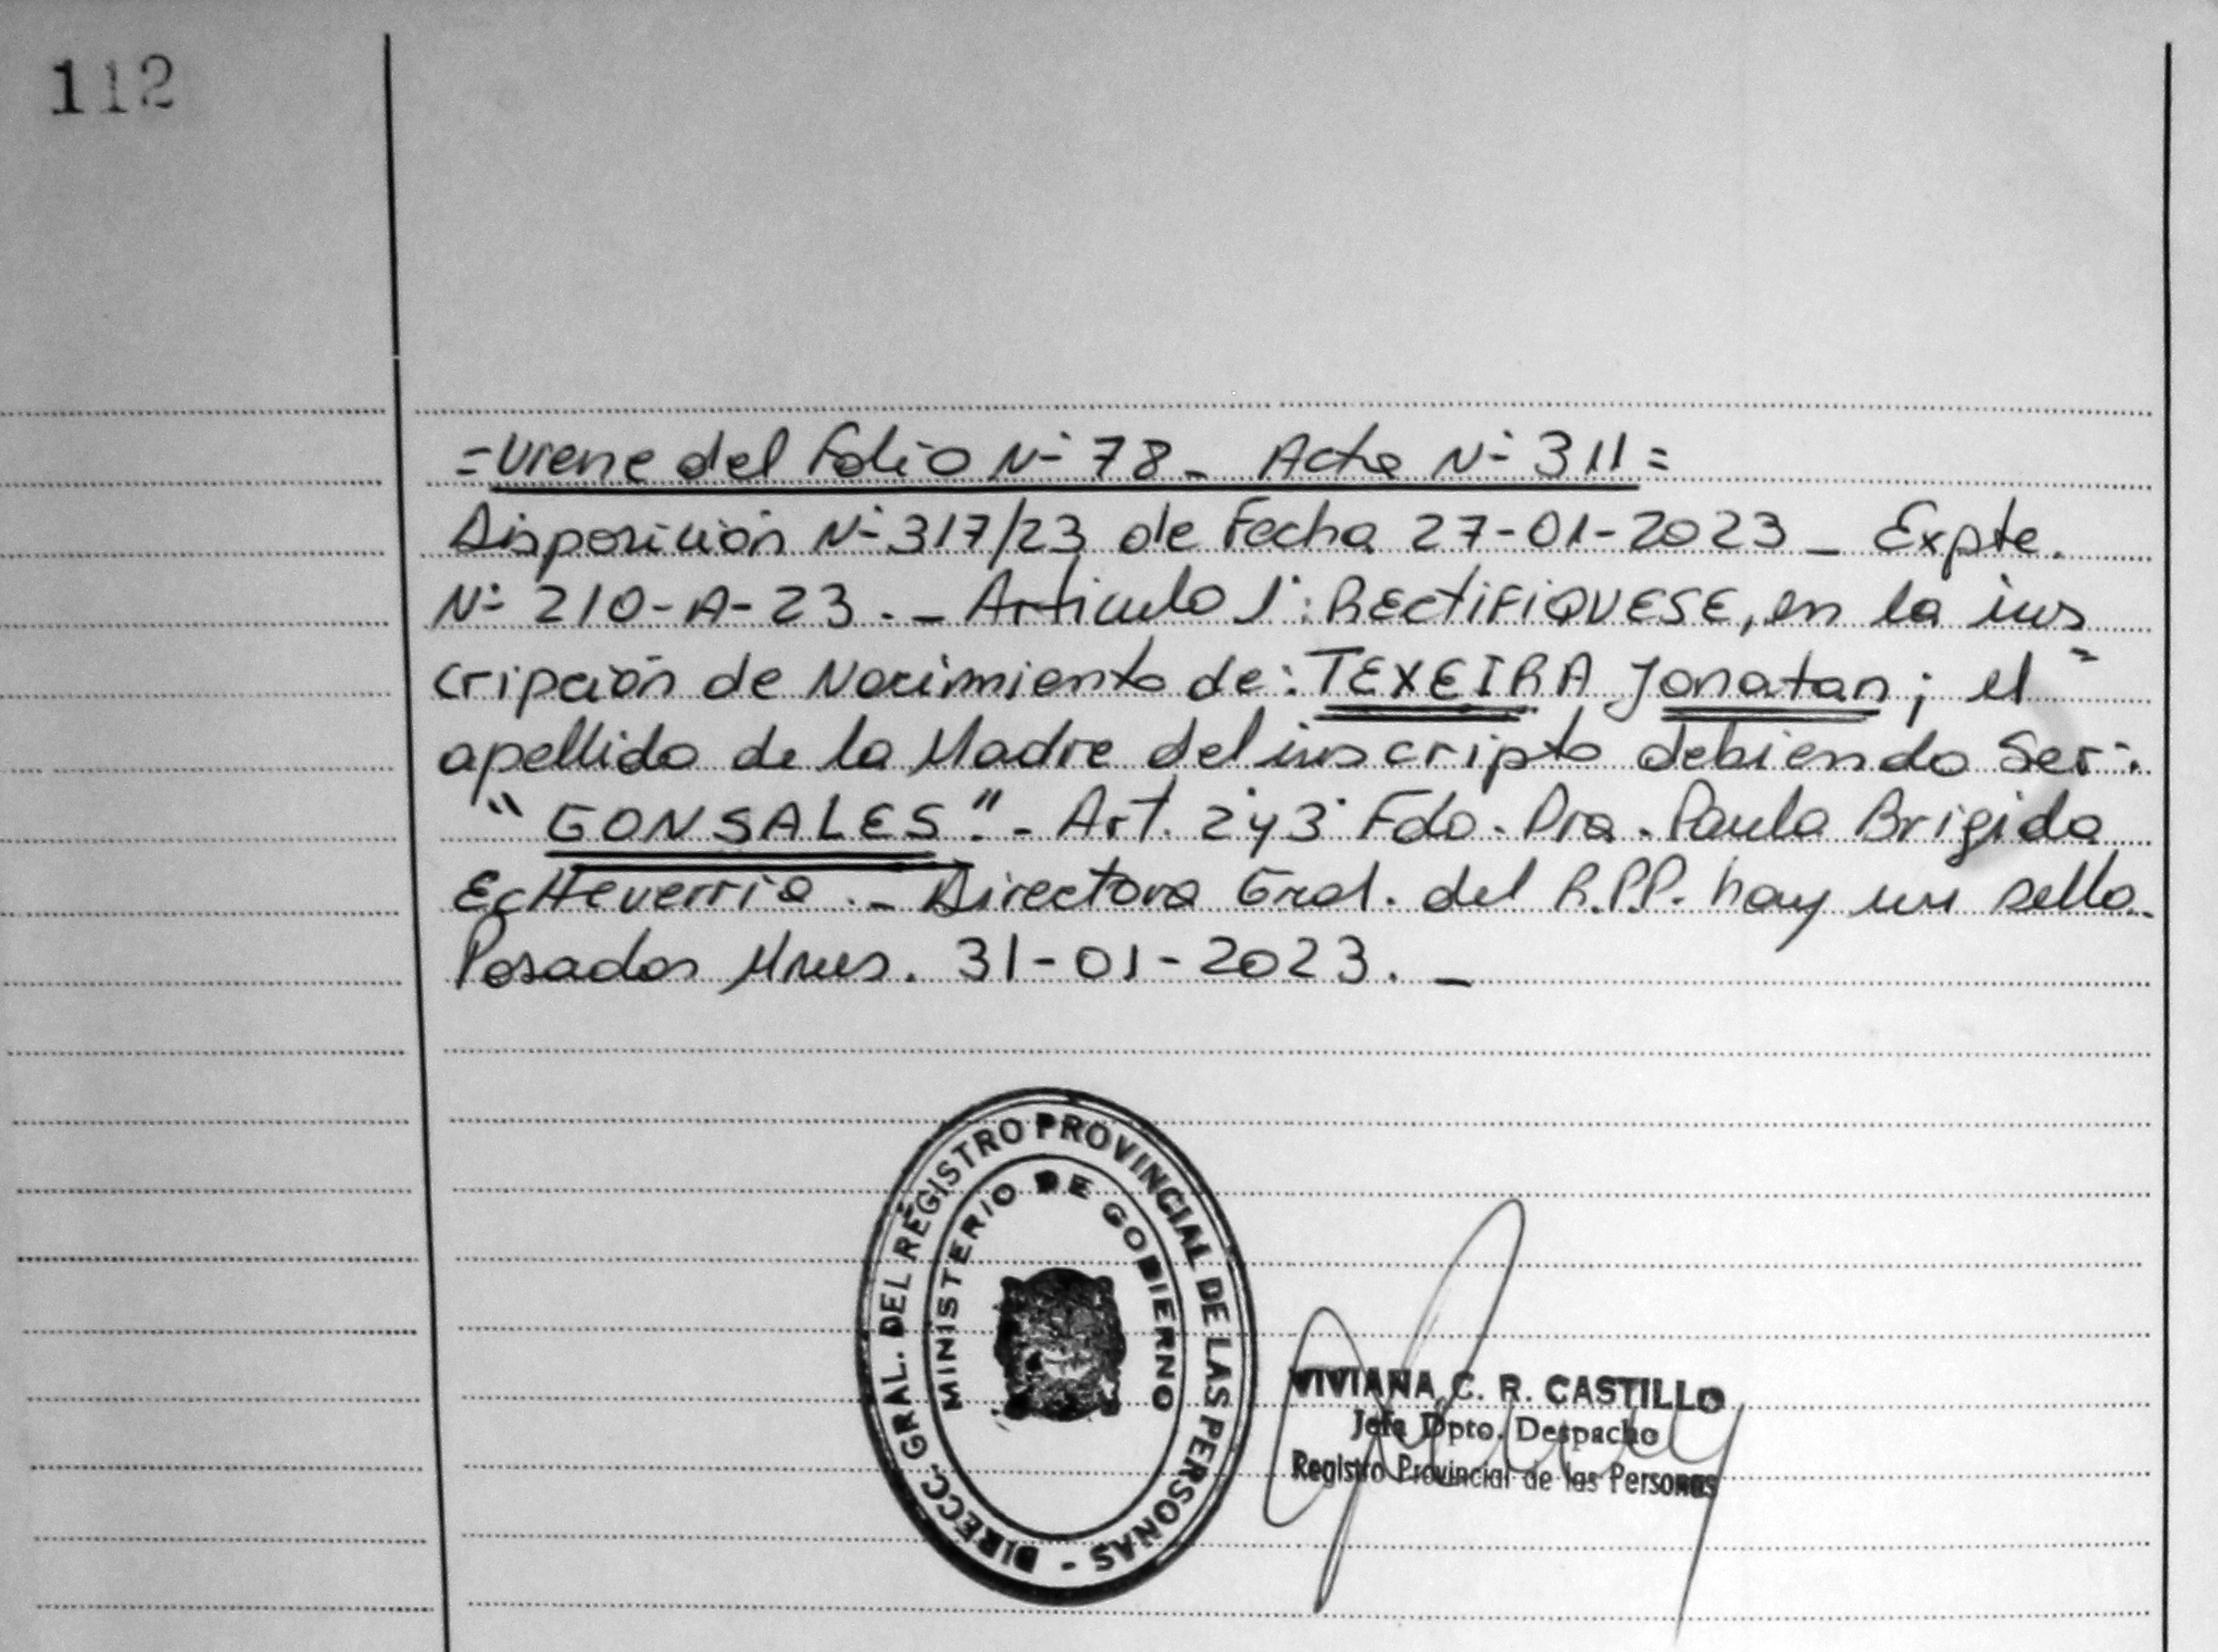 112
=Viene del Folio Nº 78_ Acta Nº 311=
Disposición Nº 317/23 de Fecha 27-01-2023 _ Expte.
Nº 210-A-23._ Articulo 1º: RECTIFIQUESE, en la ins
cripción de Nacimiento de: TEXEIRA Jonatan; el
apellido de la Madre del inscripto debiendo ser:
"GONSALES".- Art. 2º y 3º Fdo. Dra. Paula Brigida
Echeverria._ Directora Gral. del R.P.P. hay un sello.
Posadas Mnes. 31-01-2023._
DIRECC. GRAL. DEL REGISTRO PROVINCIAL DE LAS PERSONAS -
MINISTERIO DE GOBIERNO
VIVIANA C. R. CASTILLO
Jefa Dpto. Despacho
Registro Provincial de las Personas